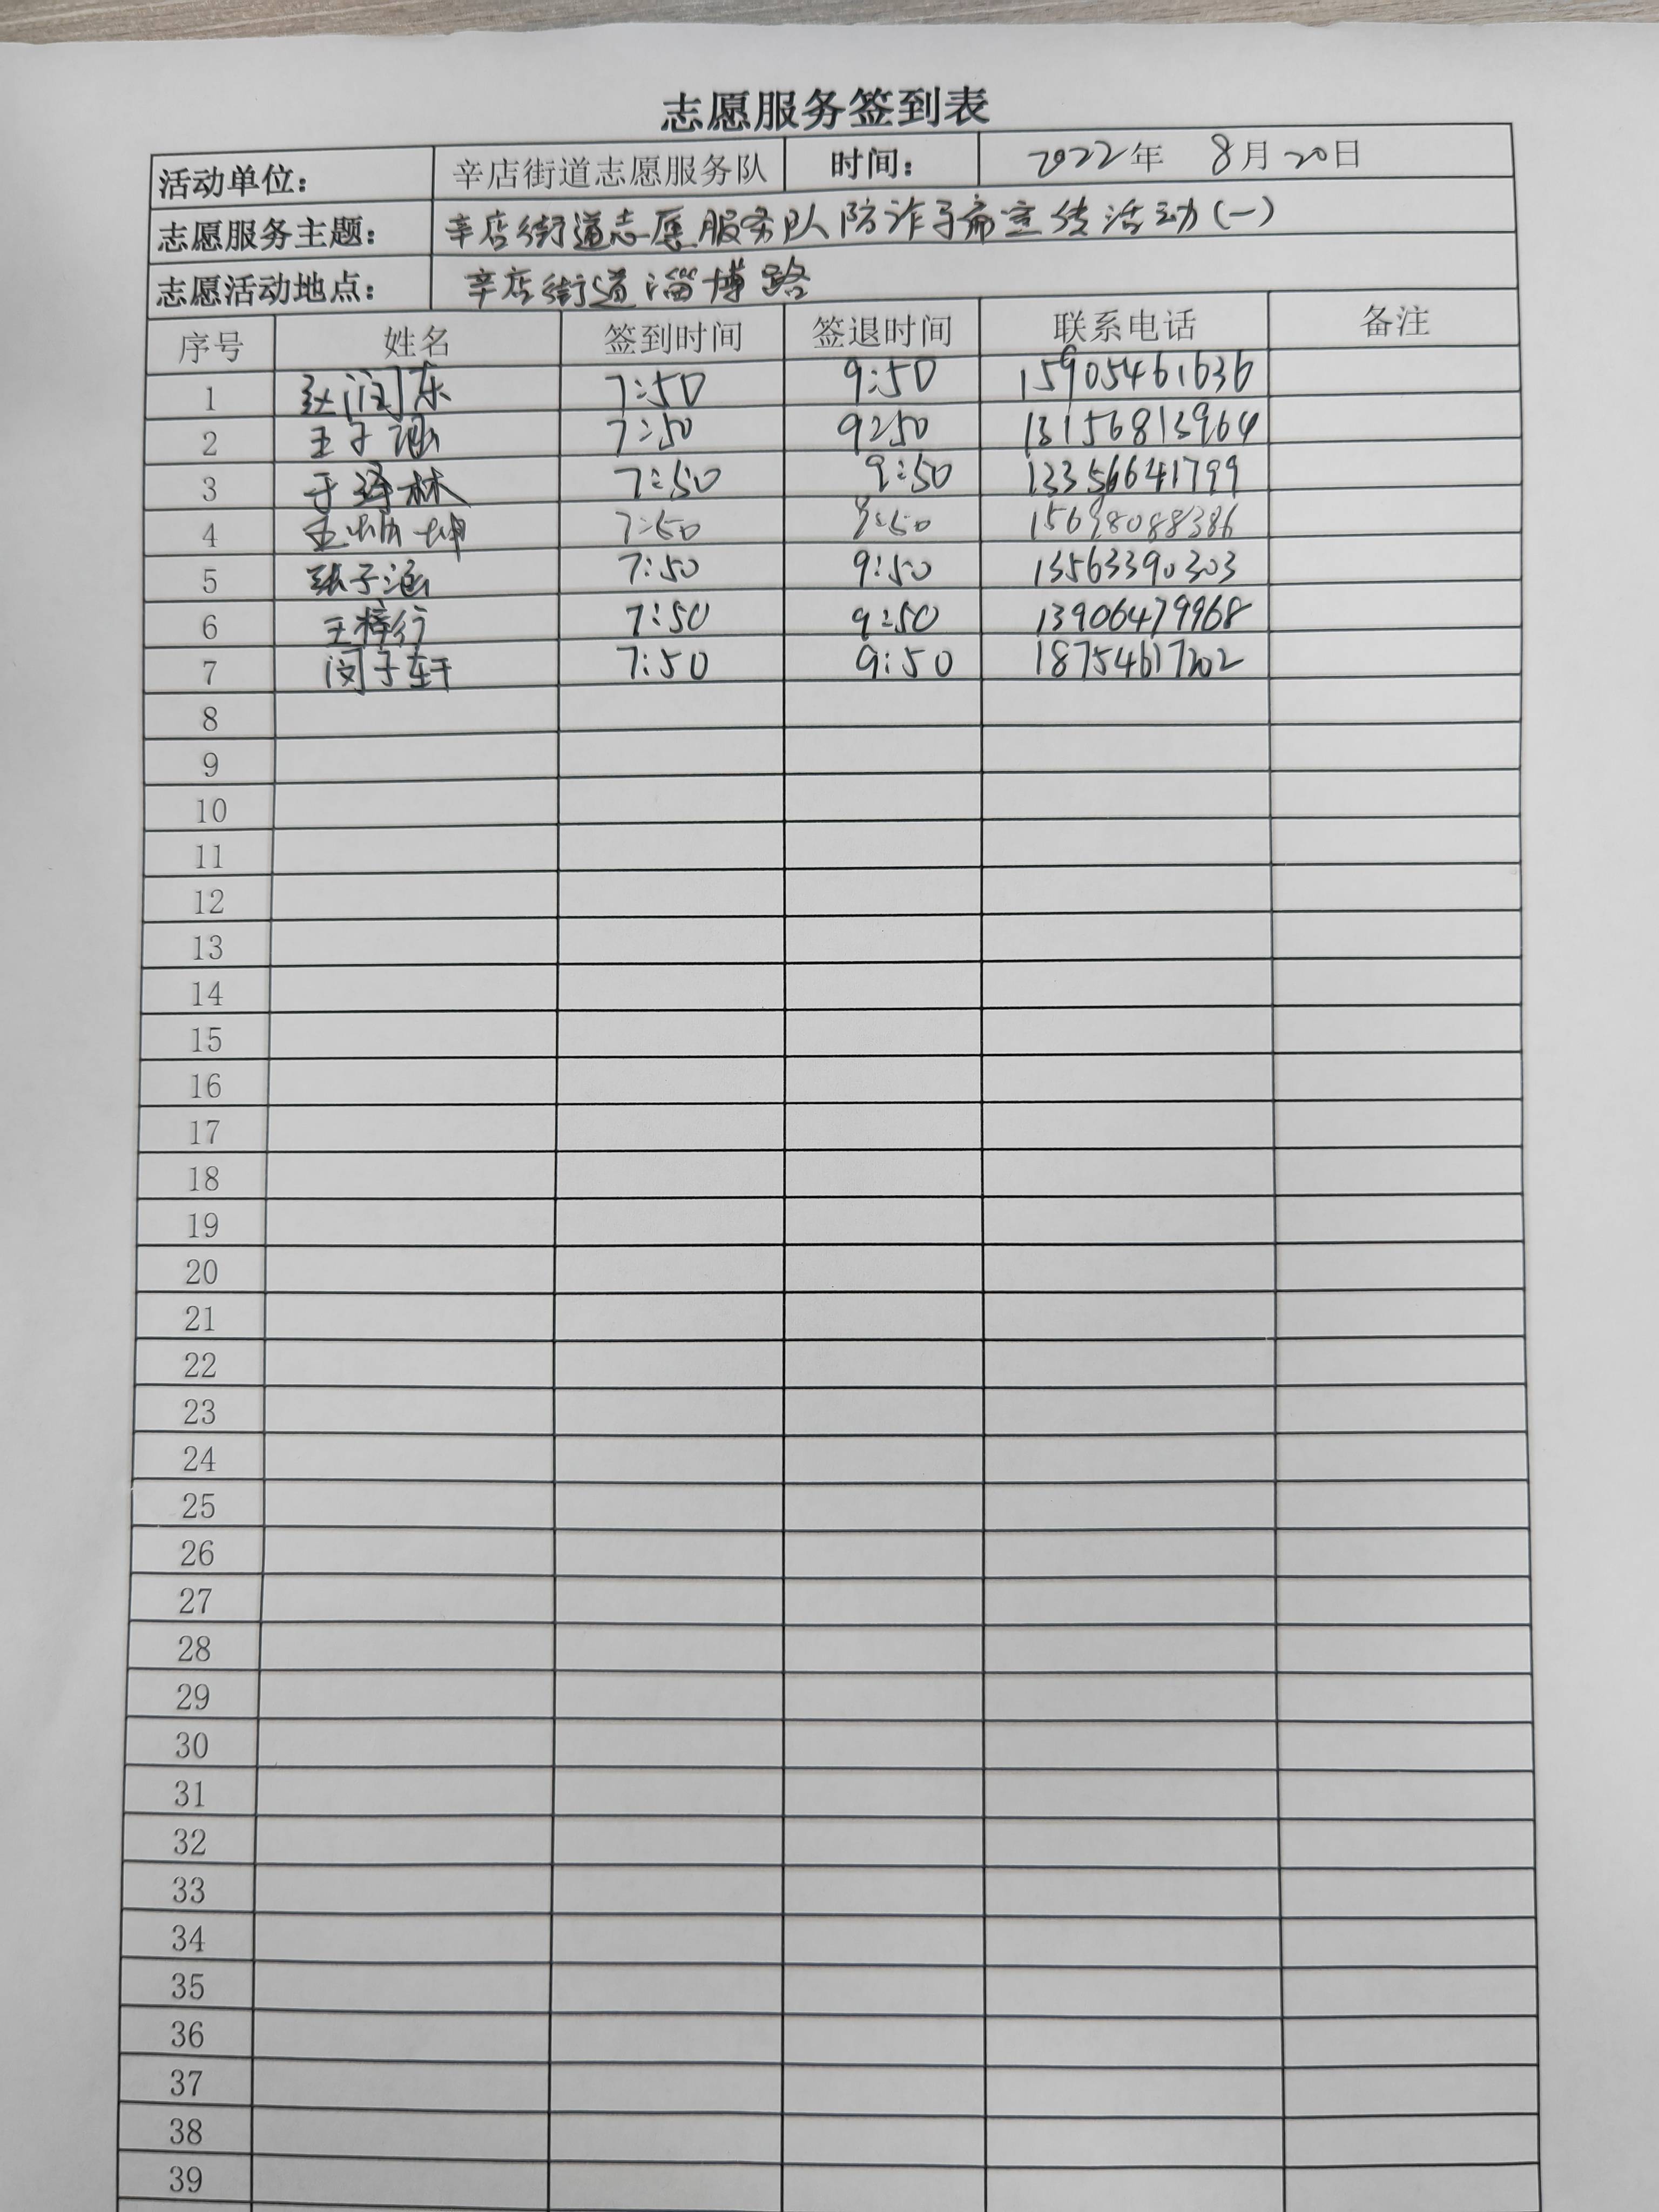 志愿服务签到表
活动单位： 辛店街道志愿服务队 时间： 2022年 8月20日
志愿服务主题： 辛店街道志愿服务队防诈手册宣传活动(一)
志愿活动地点： 辛店街道淄博路
序号 姓名 签到时间 签退时间 联系电话 备注
1 赵闰东 7:50 9:50 15905461636
2 王子涵 7:50 9:50 13156813964
3 于泽林 7:50 9:50 13356641799
4 王坤 7:50 9:50 15698088386
5 张子涵 7:50 9:50 13563390303
6 王梓行 7:50 9:50 13906479968
7 闵子轩 7:50 9:50 18754617202
8
9
10
11
12
13
14
15
16
17
18
19
20
21
22
23
24
25
26
27
28
29
30
31
32
33
34
35
36
37
38
39